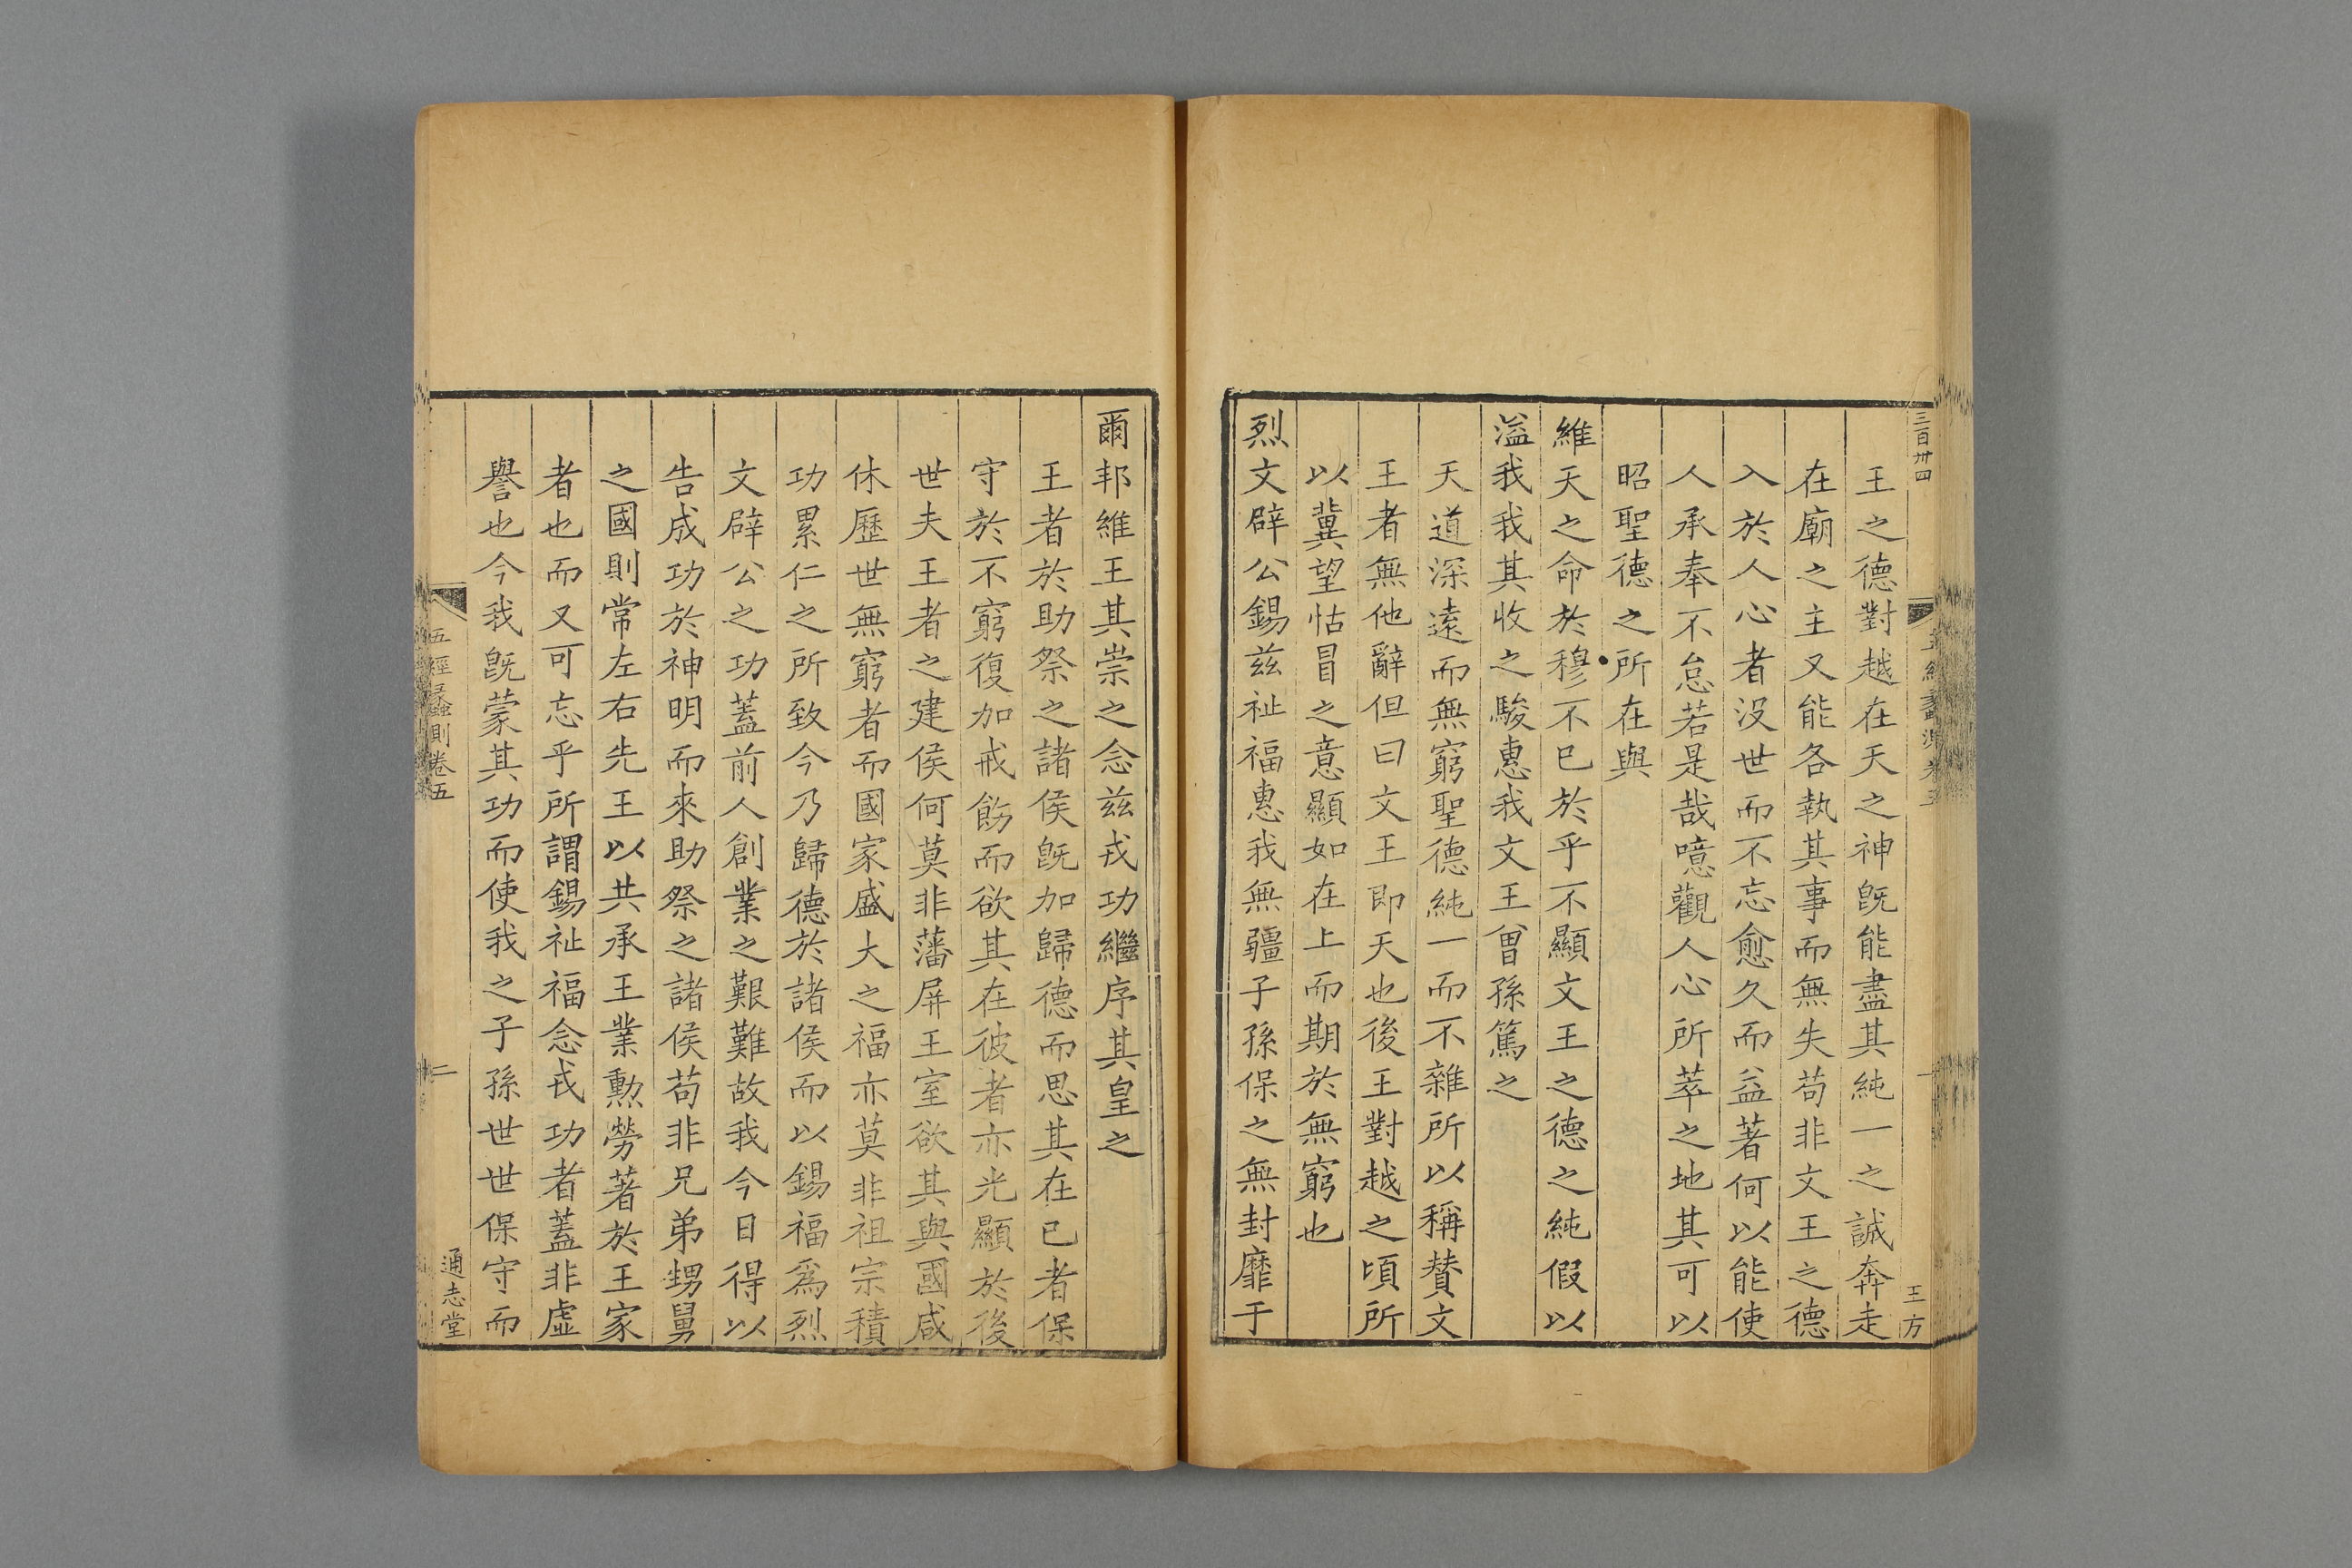 三百卅四
王方
王之德對越在天之神旣能盡其純一之誠奔走
在廟之主又能各執其事而無失苟非文王之德
入於人心者没世而不忘愈久而益著何以能使
人承奉不怠若是哉噫觀人心所萃之地其可以
昭聖德之所在與
維天之命於穆不已於乎不顯文王之德之純假以
溢我我其收之駿惠我文王曾孫篤之
天道深遠而無窮聖德純一而不雜所以稱賛文
王者無他辭但曰文王即天也後王對越之頃所
以冀望怙冒之意顯如在上而期於無窮也
烈文辟公錫兹祉福惠我無疆子孫保之無封靡于
爾邦維王其崇之念兹戎功繼序其皇之
王者於助祭之諸侯旣加歸德而思其在已者保
守於不窮復加戒飭而欲其在彼者亦光顯於後
世夫王者之建侯何莫非藩屏王室欲其與國咸
休歷世無窮者而國家盛大之福亦莫非祖宗積
功累仁之所致今乃歸德於諸侯而以錫福爲烈
文辟公之功蓋前人創業之艱難故我今日得以
告成功於神明而來助祭之諸侯苟非兄弟甥舅
之國則常左右先王以共承王業勲勞著於王家
者也而又可忘乎所謂錫祉福念戎功者蓋非虚
譽也今我旣蒙其功而使我之子孫世世保守而
五經蠡測卷五
二
通志堂